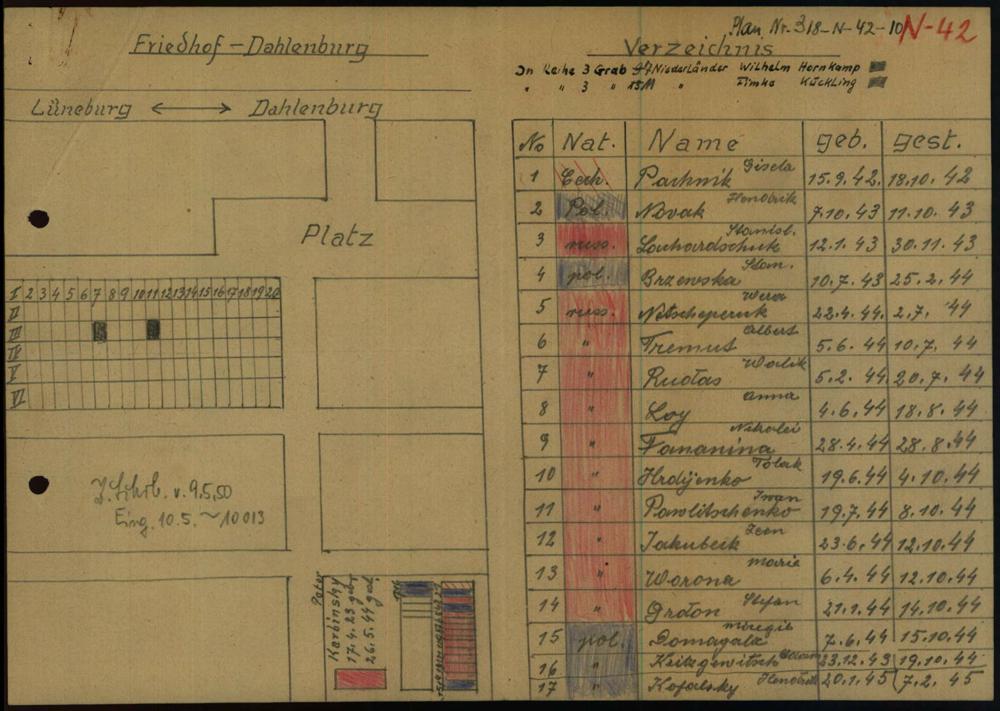 Plan Nr. 318-N-42-10
N-42
Friedhof - Dahlenburg
Lüneburg ⟷ Dahlenburg
Platz
I 2 3 4 5 6 7 8 9 10 11 12 13 14 15 16 17 18 19 20
II
III
IV
V
VI
v. 9.5.50
Eing. 10.5. ~ 10013
Peter
Karbinsky
17.4.25 geb.
26.5.44 gest.
Verzeichnis
In Reihe 3 Grab Niederländer Wilhelm Hornkamp
" " 3 " " Timke Kückling
No Nat. Name geb. gest.
1 Tech. Pachnik Gisela 15.9.42. 18.10.42
2 Pol. Novak Hendrik 7.10.43 11.10.43
3 russ. Lauhardschuk Stanisl. 12.1.43 30.11.43
4 pol. Brzewska Stan. 10.7.43 25.2.44
5 russ. Netscheperuk Wera 22.4.44. 2.7.44
6 " Tremut Albert 5.6.44 10.7.44
7 " Rudas 5.2.44 20.7.44
8 " Loy Anna 4.6.44 18.8.44
9 " Fananina Nikolei 28.4.44 28.8.44
10 " Hrdijenko Tolak 19.6.44 4.10.44
11 " Pawlitschenko Iwan 19.7.44 8.10.44
12 " Jakubeik Leon 23.6.44 12.10.44
13 " Worona Maria 6.4.44 12.10.44
14 " Grdon Stefan 21.1.44 14.10.44
15 pol. Domagala 7.6.44 15.10.44
16 " Keitzgewitsch 23.12.43 19.10.44
17 " Kofalsky Hendrik 20.1.45 7.2.45